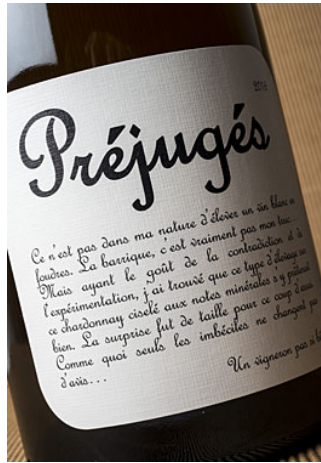 2016
Préjugés
Ce n'est pas dans ma nature d'élever un vin blanc en
foudres. La barrique, c'est vraiment pas mon truc...
Mais ayant le goût de la contradiction et de
l'expérimentation, j'ai trouvé que ce type d'élevage sur
ce chardonnay ciselé aux notes minérales s'y prêterait
bien. La surprise fut de taille pour ce coup d'essai.
Comme quoi seuls les imbéciles ne changent pas
d'avis...
Un vigneron pas si